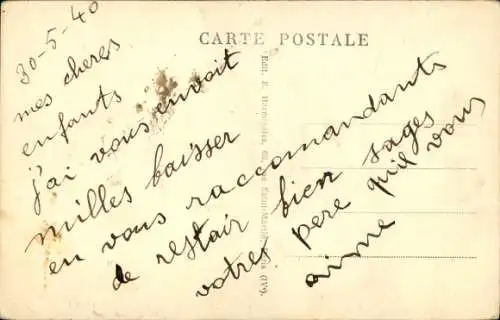 CARTE POSTALE
30-5-40
mes cheres
enfants
j'ai vous envoit
milles baisser
en vous raccomandants
de restair bien sages
votres pere qui vous
aime
Edit. F. Paris (IVe).